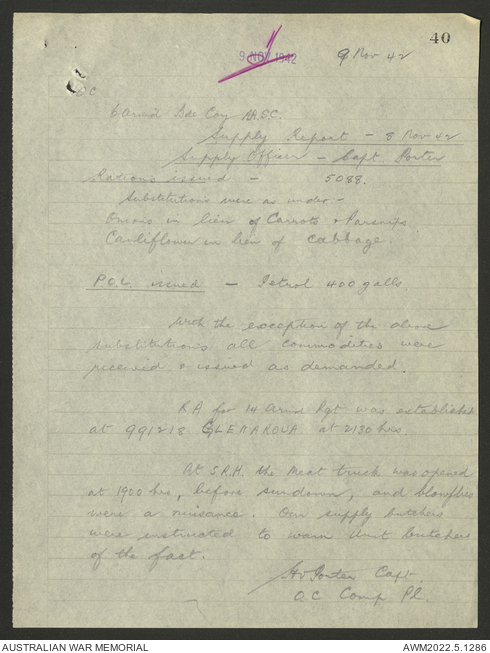 40
9 NOV 1942
9 Nov 42
OC
6 Armd Bde Coy AASC.
Supply Report - 8 Nov 42
Supply Officer - Capt. Porter
Rations issued - 5088.
Substitutions were as under:-
Onions in lieu of Carrots & Parsnips
Cauliflower in lieu of cabbage.
P.O.L. issued - Petrol 400 galls.
With the exception of the above
substitutions all commodities were
received & issued as demanded.
R.A. for 14 Armd Rgt was established
at 991218 at 2130 hrs
At S.R.H. the meat truck was opened
at 1900 hrs, before sundown, and blowflies
were a nuisance. Our supply butchers
were instructed to warn Unit butchers
of the fact.
Porter Capt,
O.C Comp Pl.
AUSTRALIAN WAR MEMORIAL
AWM2022.5.1286